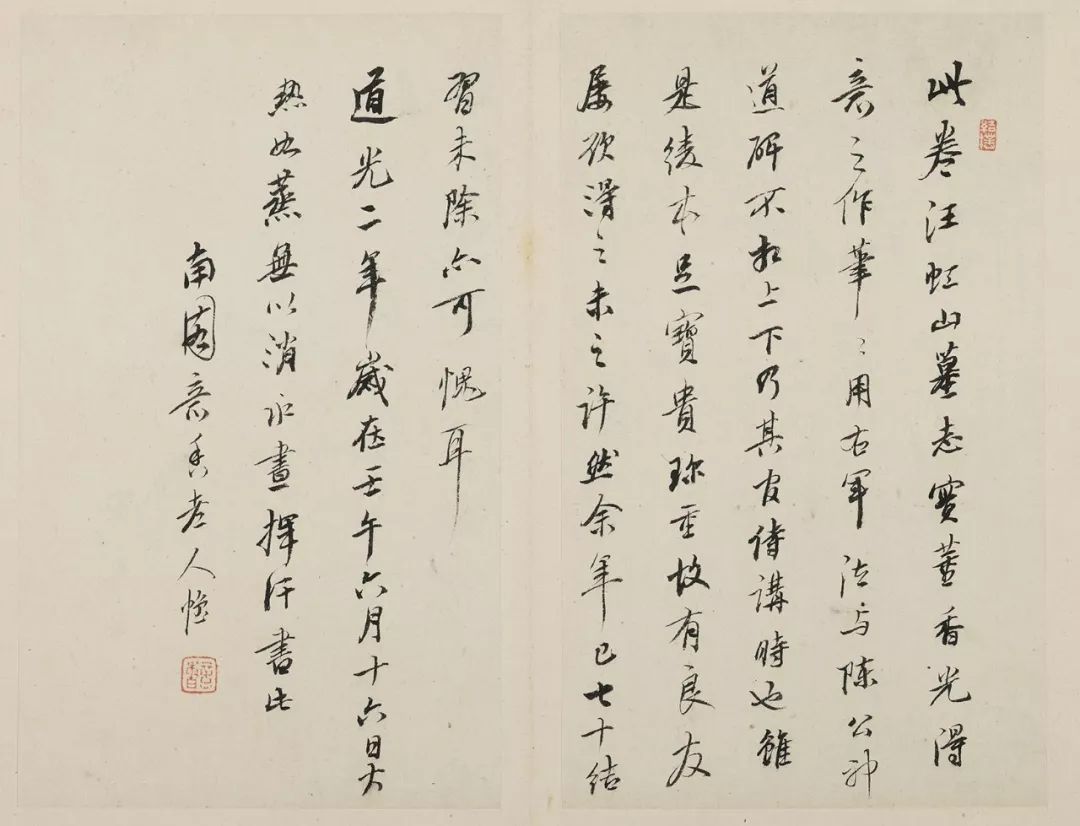 此卷汪虹山墓志实董香光得
意之作笔笔用右军法与陈公神
道碑不相上下乃其官侍讲时也虽
是绫本足寶貴珍重故有良友
屡欲得之未之许然余年已七十结
習未除亦可愧耳
道光二年歲在壬午六月十六日大
热如蒸無以消永晝揮汗書此
南園意香老人